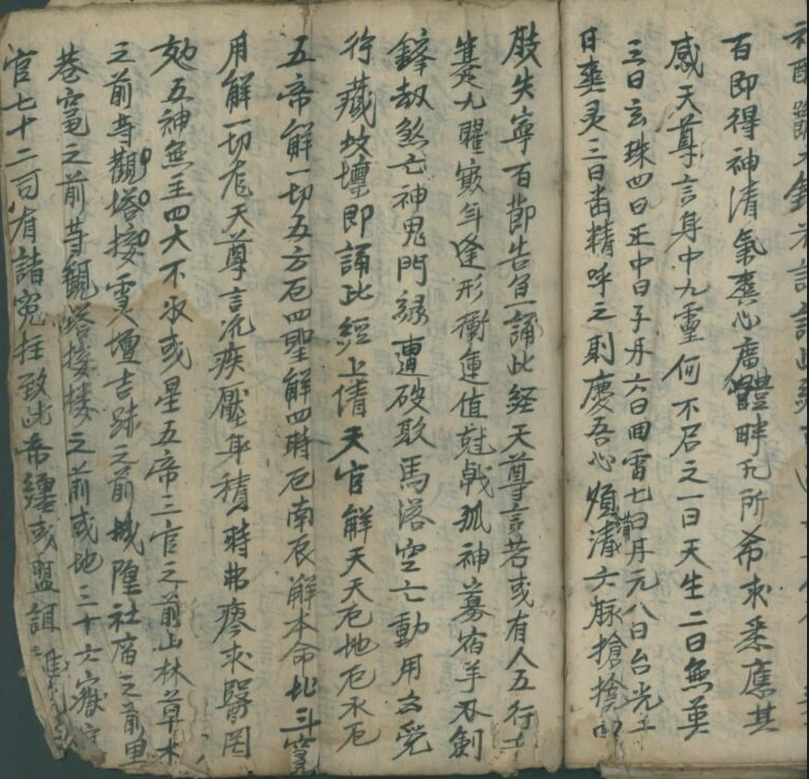 百即得神清氣爽心廣體胖凡所希求悉應其
感天尊言身中九靈何不召之一日天生二日無英
三日玄珠四日正中日子丹六日回雷七日丹元八日台光土
日爽灵三日凼精呼之則慶吾心煩滿六脉搶搶四
肢失寧百節告急誦此経天尊言若或有人五行土
九曜嵗年逢形衝運值尅戟孤神寡宿羊刃劍
鋒刼煞亡神鬼門緣遭破敗馬落空亡動用云兇
行藏坟壈即誦此經上倩天官解天天厄地厄水厄
五帝解一切五方厄四聖解四時厄南辰解本命北斗
用解一切厄天尊言沉疾壓身積時弗瘳求醫罔
効五神無主四大不收或星五帝三官之前山林草木
之前寺觀塔接灵壇吉跡之前城隍社廟之前里
巷之前寺觀塔接樓之前或地三十六嶽
官七十二司有諸寃枉致此希纏或盟詛